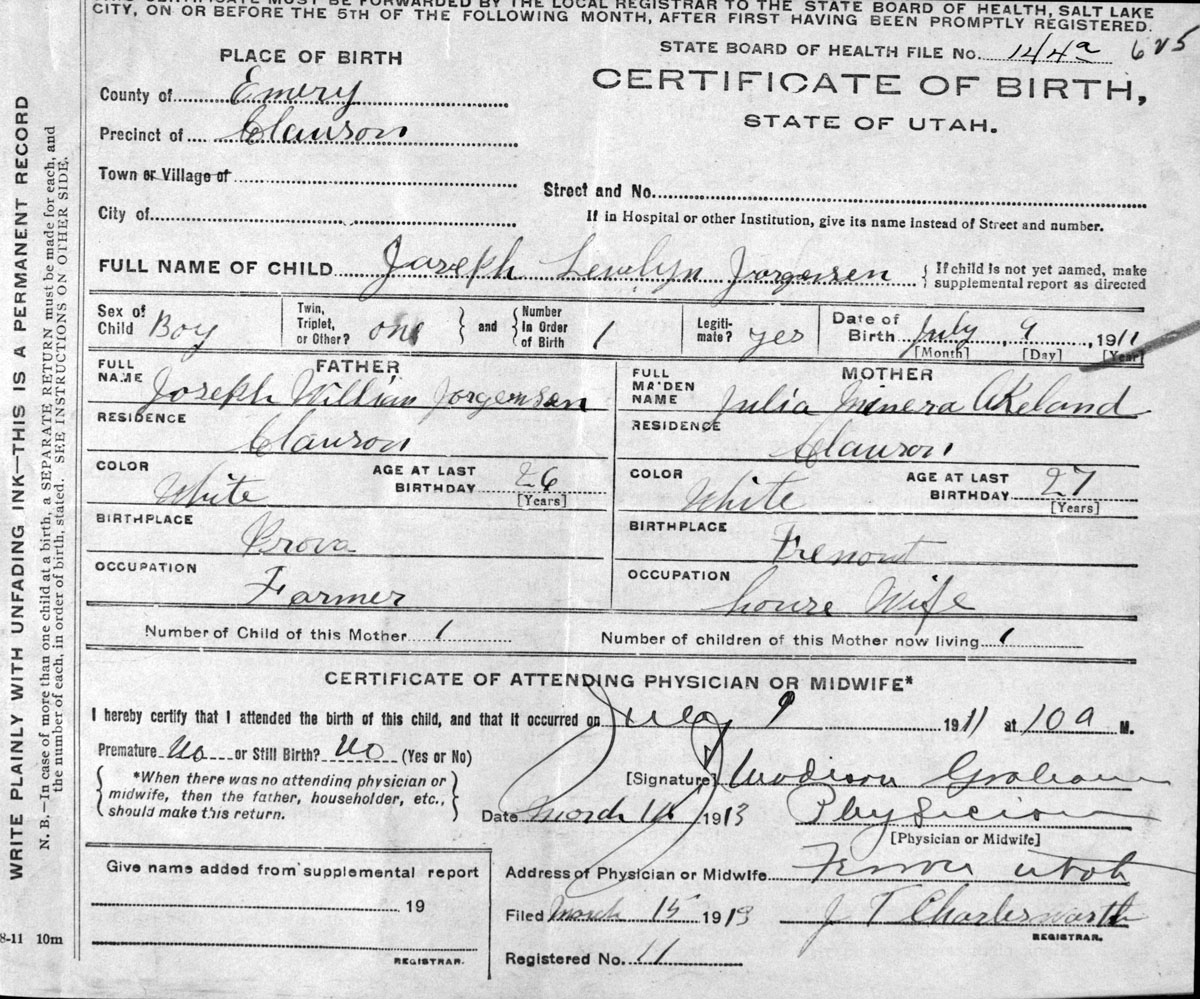 THIS CERTIFICATE MUST BE FORWARDED BY THE LOCAL REGISTRAR TO THE STATE BOARD OF HEALTH, SALT LAKE
CITY, ON OR BEFORE THE 5TH OF THE FOLLOWING MONTH, AFTER FIRST HAVING BEEN PROMPTLY REGISTERED.
STATE BOARD OF HEALTH FILE No. 144a 625
PLACE OF BIRTH
CERTIFICATE OF BIRTH,
STATE OF UTAH.
County of Emery
Precinct of Clawson
Town or Village of
Street and No.
City of
If in Hospital or other Institution, give its name instead of Street and number.
FULL NAME OF CHILD Joseph Lewelyn Jorgensen { If child is not yet named, make
supplemental report as directed
Sex of Child Boy Twin, Triplet, or Other? one } and { Number In Order of Birth 1 Legiti-mate? yes Date of Birth July, 9, 1911
[Month] [Day] [Year]
FATHER MOTHER
FULL NAME Joseph William Jorgensen FULL MAIDEN NAME Julia Minera Akeland
RESIDENCE Clawson RESIDENCE Clawson
COLOR White AGE AT LAST BIRTHDAY 26 [Years] COLOR White AGE AT LAST BIRTHDAY 27 [Years]
BIRTHPLACE Provo BIRTHPLACE Fremont
OCCUPATION Farmer OCCUPATION house Wife
Number of Child of this Mother 1 Number of children of this Mother now living 1
CERTIFICATE OF ATTENDING PHYSICIAN OR MIDWIFE*
I hereby certify that I attended the birth of this child, and that it occurred on July 9 1911 at 10 a M.
Premature No or Still Birth? No (Yes or No)
{ *When there was no attending physician or
midwife, then the father, householder, etc.,
should make this return. }
[Signature] Madison Graham
Date March 1913 Physician
[Physician or Midwife]
Address of Physician or Midwife Ferron Utah
Filed March 15 1913 J T Charlesworth
REGISTRAR.
Registered No. 11
Give name added from supplemental report
19
REGISTRAR.
8-11 10m
WRITE PLAINLY WITH UNFADING INK—THIS IS A PERMANENT RECORD
N. B.—In case of more than one child at a birth, a SEPARATE RETURN must be made for each, and
the number of each, in order of birth, stated. SEE INSTRUCTIONS ON OTHER SIDE.